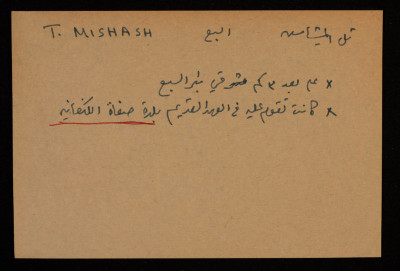 T. MISHASH البع تل المشاش
× على بعد ٣ كم شرقي بئر السبع
× كانت تقوم عليه في العهد القديم بلدة صفاة الكنعانيه